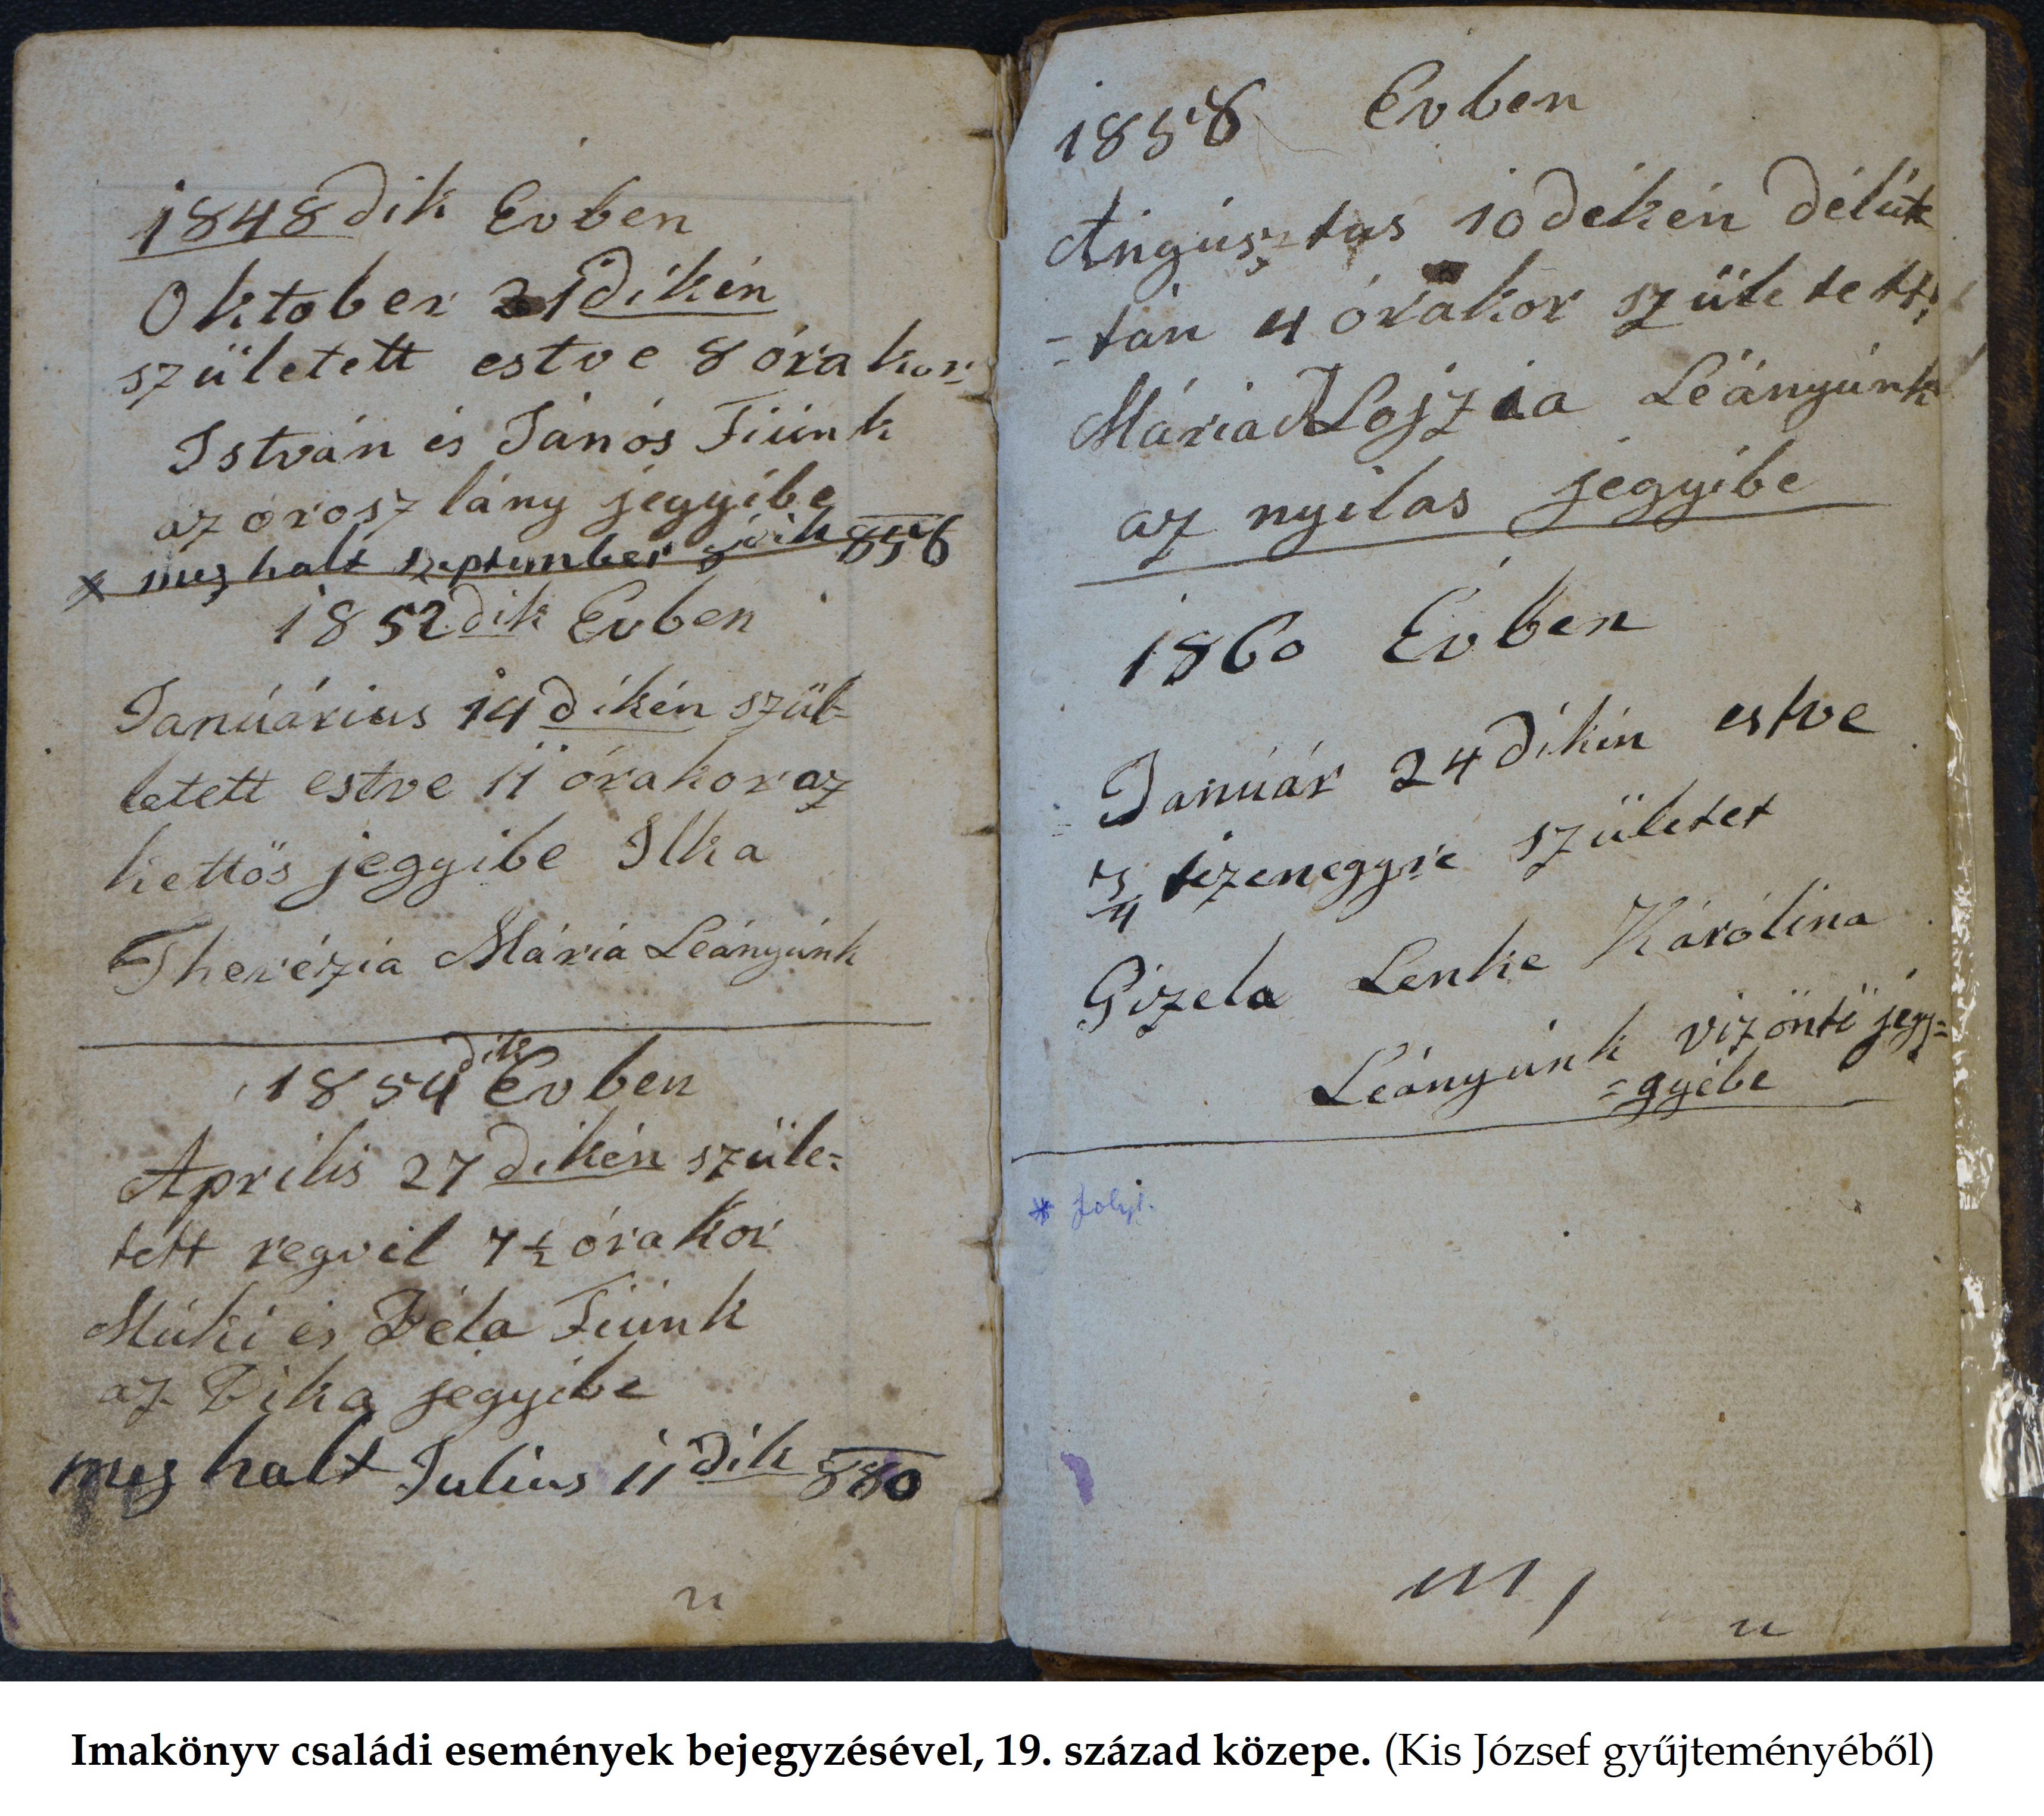 1848dik Evben
Oktober 21dikén
született estve 8 órakor
István és Jánós Fiúnk
az orosz lány jegyibe
* meg halt September dik 856
1852dik Evben
Januárius 14dikén szül=
letett estve 11 órakor az
kettös jegyibe Ilka
Therézia Mária Leányúnk
1854dik Evben
Aprilis 27dikén szüle=
tett regvel 7 1/2 órakor
Múki és Béla Fiúnk
az Bika jegyibe
meg halt Julius 11dik 880
n
1858 Evben
Aúgúsztus 10dékén délút
=tán 4 órakor születettt
Mária ALojzia Leányúnk
az nyilas jegyibe
1860 Évben
Január 24dikén estve
3/4 tizenegyre születet
Gizela Lenke Károlina
Leányúnk vizöntö jegy=
=gyébe
* folyt.
n
Imakönyv családi események bejegyzésével, 19. század közepe. (Kis József gyűjteményéből)